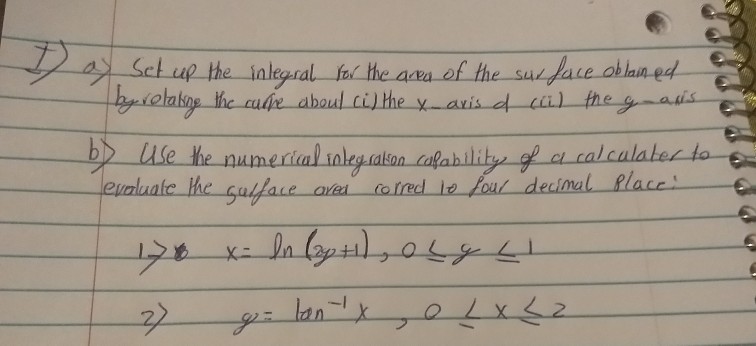 I) a) Set up the integral for the area of the surface obtained
by rotating the curve about (i) the x-axis d (ii) the y-axis
b) Use the numerical integration capability of a calculater to
evaluate the surface area correct to four decimal place:
1) x = ln (2y+1), 0 ≤ y ≤ 1
2) y = tan⁻¹ x, 0 ≤ x ≤ 2